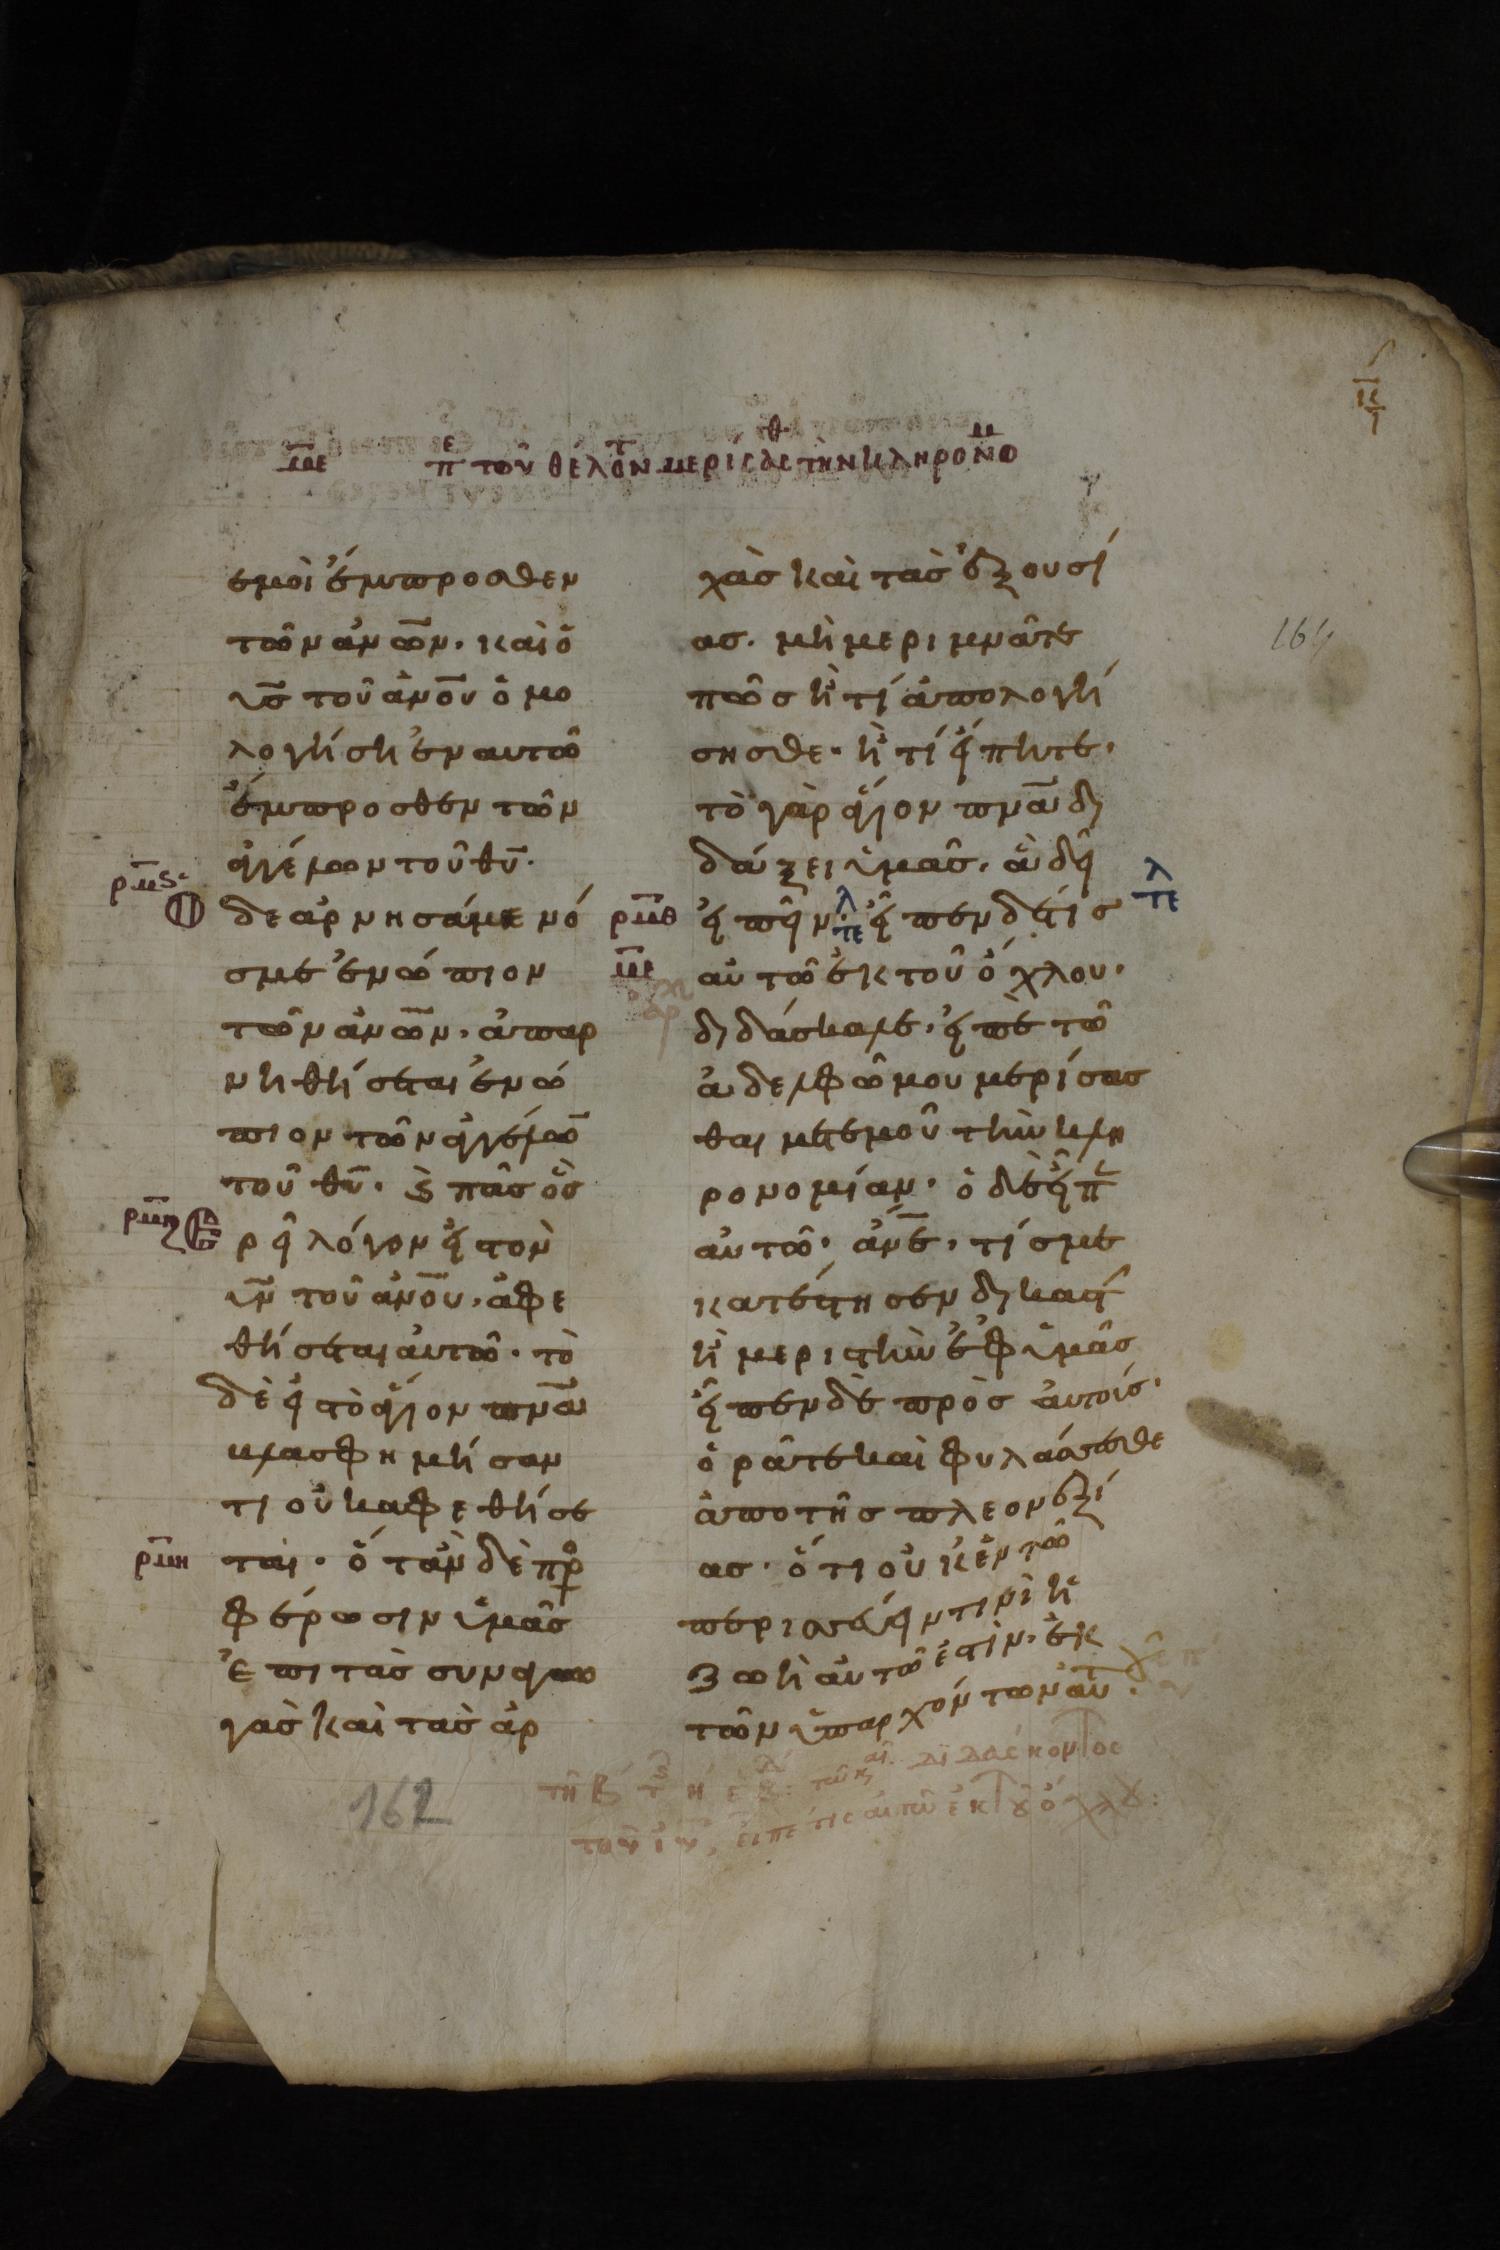 με πε του θέλοντ μερίσασθ τὴν κληρονομ
εμοὶ ἔμπροσθεν
τῶν ἀν̅ων· καὶ ὁ
υ̅σ τοῦ ἀν̅ου ὁμο
λογήση ἐν αυτῶ
ἔμπροσθεν τῶν
ἀγγέλων τοῦ θ̅υ·
ρμς
δε ἀρνησάμενό
σ με ἐνώπιον
τῶν ἀν̅ων· ἀπαρ
νηθήσεται ἐνώ
πιον τῶν ἀγγέλω̅
τοῦ θ̅υ· ϛ πᾶσ ὃσ
ρμζ
ρεῖ λόγον εἰσ τὸν
υ̅ν τοῦ ἀν̅ου· ἀφε
θήσεται ἀυτῶ· τὸ
δὲ εἰσ τὸ ἅγιον πν̅α
βλασφημήσαν
τι οὐκ αφεθήσε
ρμη
ται· ὅταν δὲ προ
φέρωσιν ὑμᾶσ
Ἐπι τὰσ συναγω
γὰσ καὶ τὰσ ἀρ
χὰσ καὶ τὰσ ἐξουσί
ασ· μὴ μεριμνᾶτε
πῶσ ἢ τί ἀπολογή
σησθε· ἢ τί εἴπητε·
τὸ γὰρ ἅγιον πν̅α δι
δάξει ὑμᾶσ· ἃ δεῖ
ρμθ
εἰπεῖν· τε λ εἶπεν δέ τισ τε λ
με
αὐτῶ ἐκ τοῦ ὄχλου·
διδάσκαλε· εἰπὲ τῶ
ἀδελφῶ μου μερίσασ
θαι μετεμοῦ τὴν κλη
ρονομίαν· ὁ δὲ εἶπε
αὐτῶ· ἀν̅ε· τίσ με
κατέστησεν δικαστ
ἢ μεριστὴν ἐφ ὑμᾶσ
εἶπεν δὲ πρὸσ ἀυτοίσ·
ὁρᾶτε καὶ φυλάσσεσθε
ἀπο τῆσ πλεονεξί
ασ· ὅτι οὐκ ἐν τῶ
περισσεύειν τινὶ ἡ
ζωὴ αὐτῶ ἐστὶν· ἐκ
τῶν ὑπαρχόντων αὐτ·
διδάσκοντος
τοῦ ιυ, εἰπέ τις αὐτῶ ἐκ τȣ ὄχλȣ:
164
162